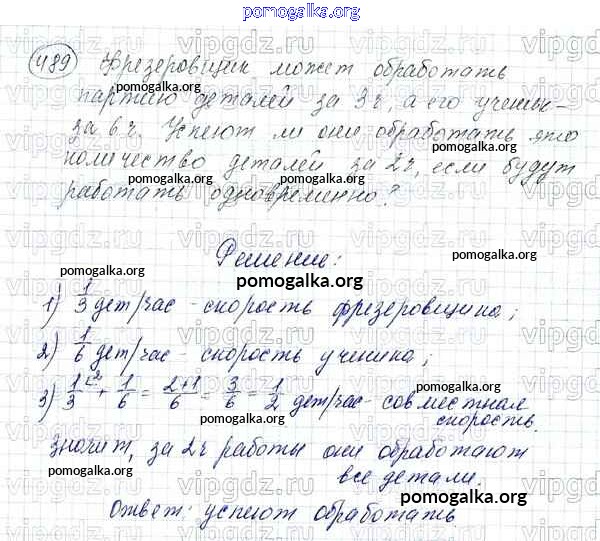 pomogalka.org
489 Фрезеровщик может обработать
партию деталей за 3 ч, а его ученик –
за 6 ч. Успеют ли они обработать это
количество деталей за 2 ч, если будут
работать одновременно?
Решение:
1) 1/3 дет/час - скорость фрезеровщика;
2) 1/6 дет/час - скорость ученика;
3) 1/3 + 1/6 = 2+1/6 = 3/6 = 1/2 дет/час - совместная
скорость.
значит, за 2ч работы они обработают
все детали.
Ответ: успеют обработать